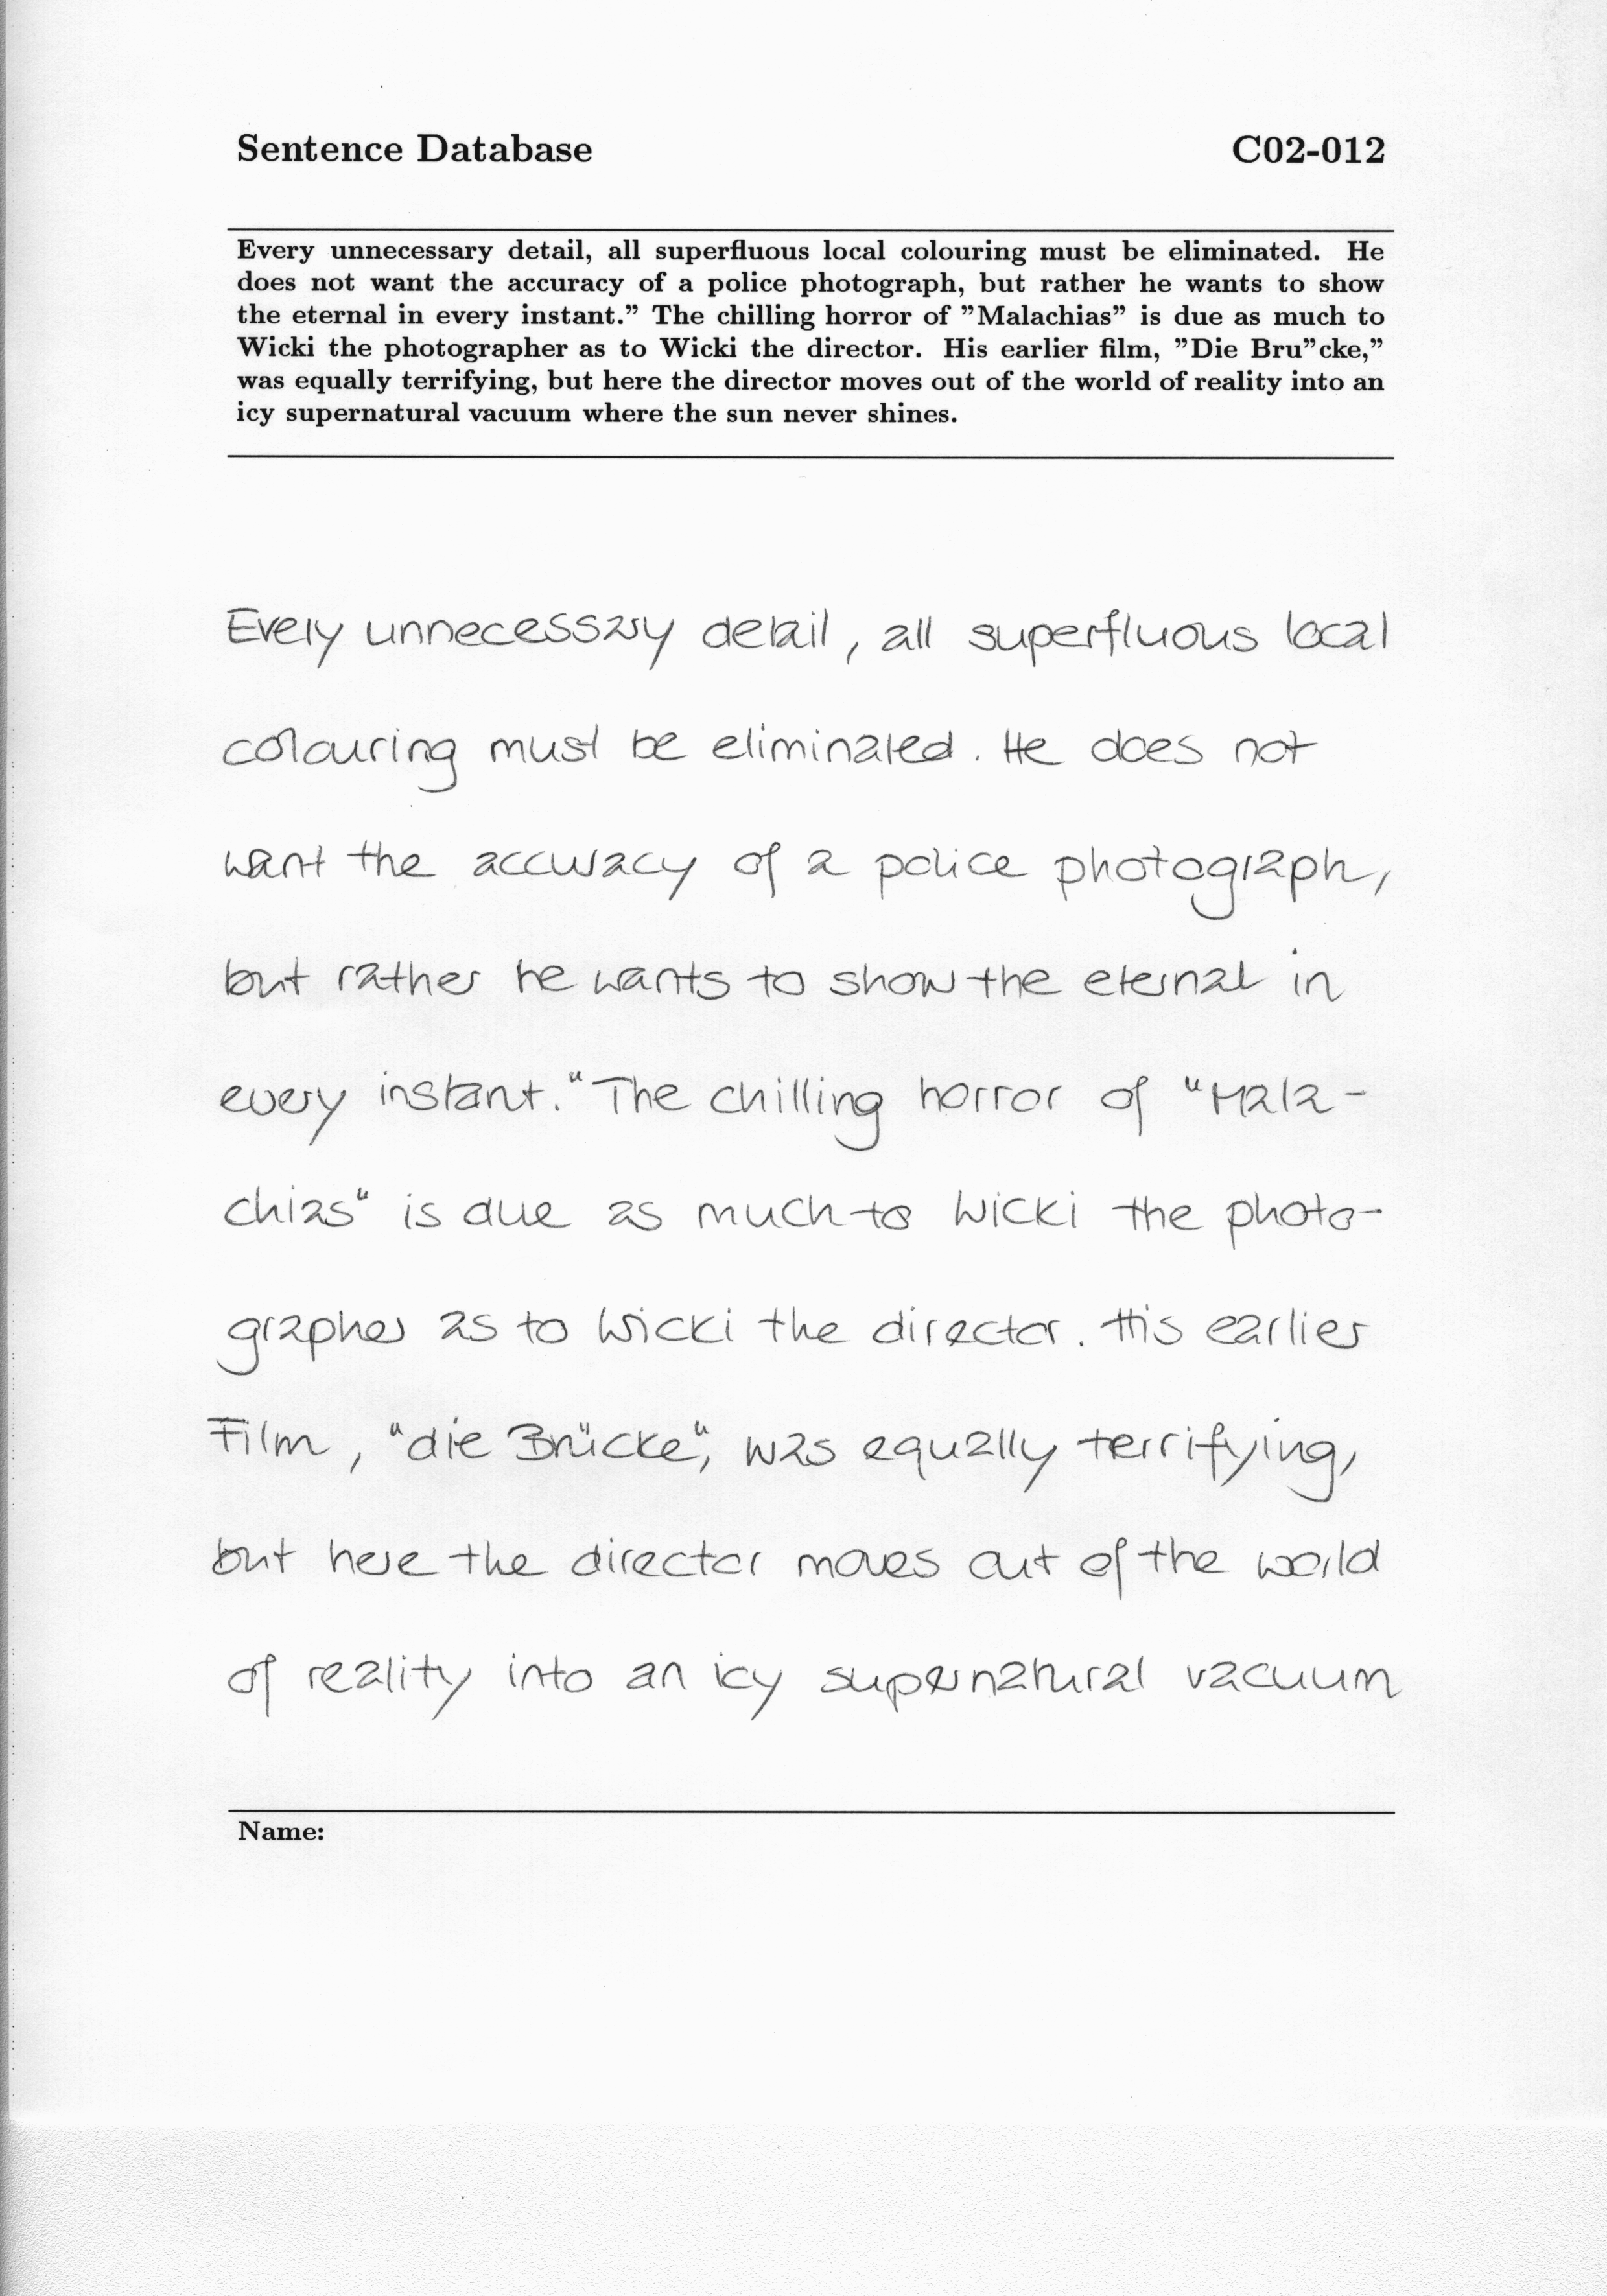 Sentence Database C02-012
Every unnecessary detail, all superfluous local colouring must be eliminated. He
does not want the accuracy of a police photograph, but rather he wants to show
the eternal in every instant.” The chilling horror of ”Malachias” is due as much to
Wicki the photographer as to Wicki the director. His earlier film, ”Die Bru”cke,”
was equally terrifying, but here the director moves out of the world of reality into an
icy supernatural vacuum where the sun never shines.
Every unnecessary detail, all superfluous local
colouring must be eliminated. He does not
want the accuracy of a police photograph,
but rather he wants to show the eternal in
every instant.“ The chilling horror of “Mala-
chias“ is due as much to Wicki the photo-
grapher as to Wicki the director. His earlier
Film, “die Brücke“, was equally terrifying,
but here the director moves out of the world
of reality into an icy supernatural vacuum
Name: